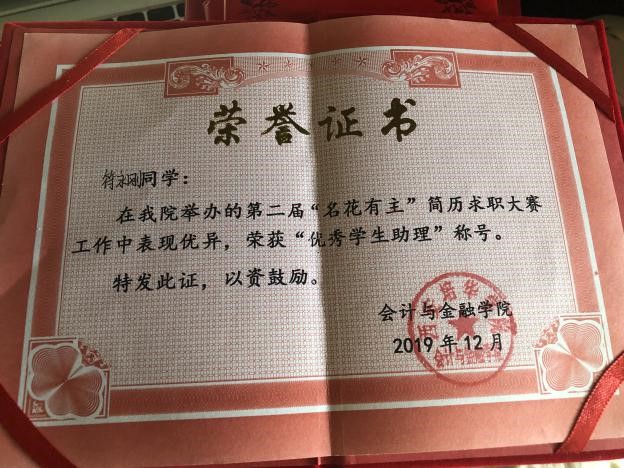 荣誉证书
符永刚同学：
在我院举办的第二届“名花有主”简历求职大赛
工作中表现优异，荣获“优秀学生助理”称号。
特发此证，以资鼓励。
会计与金融学院
2019年12月
会计与金融学院